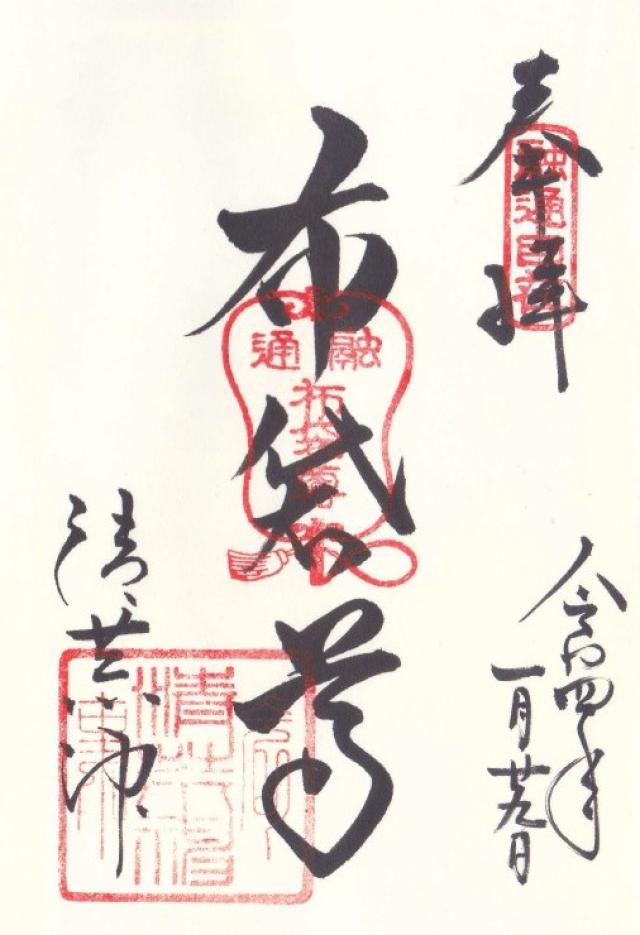 奉拝
令和四年
一月廿九日
布袋尊
融通
布袋尊
清荒神
清荒神
融通